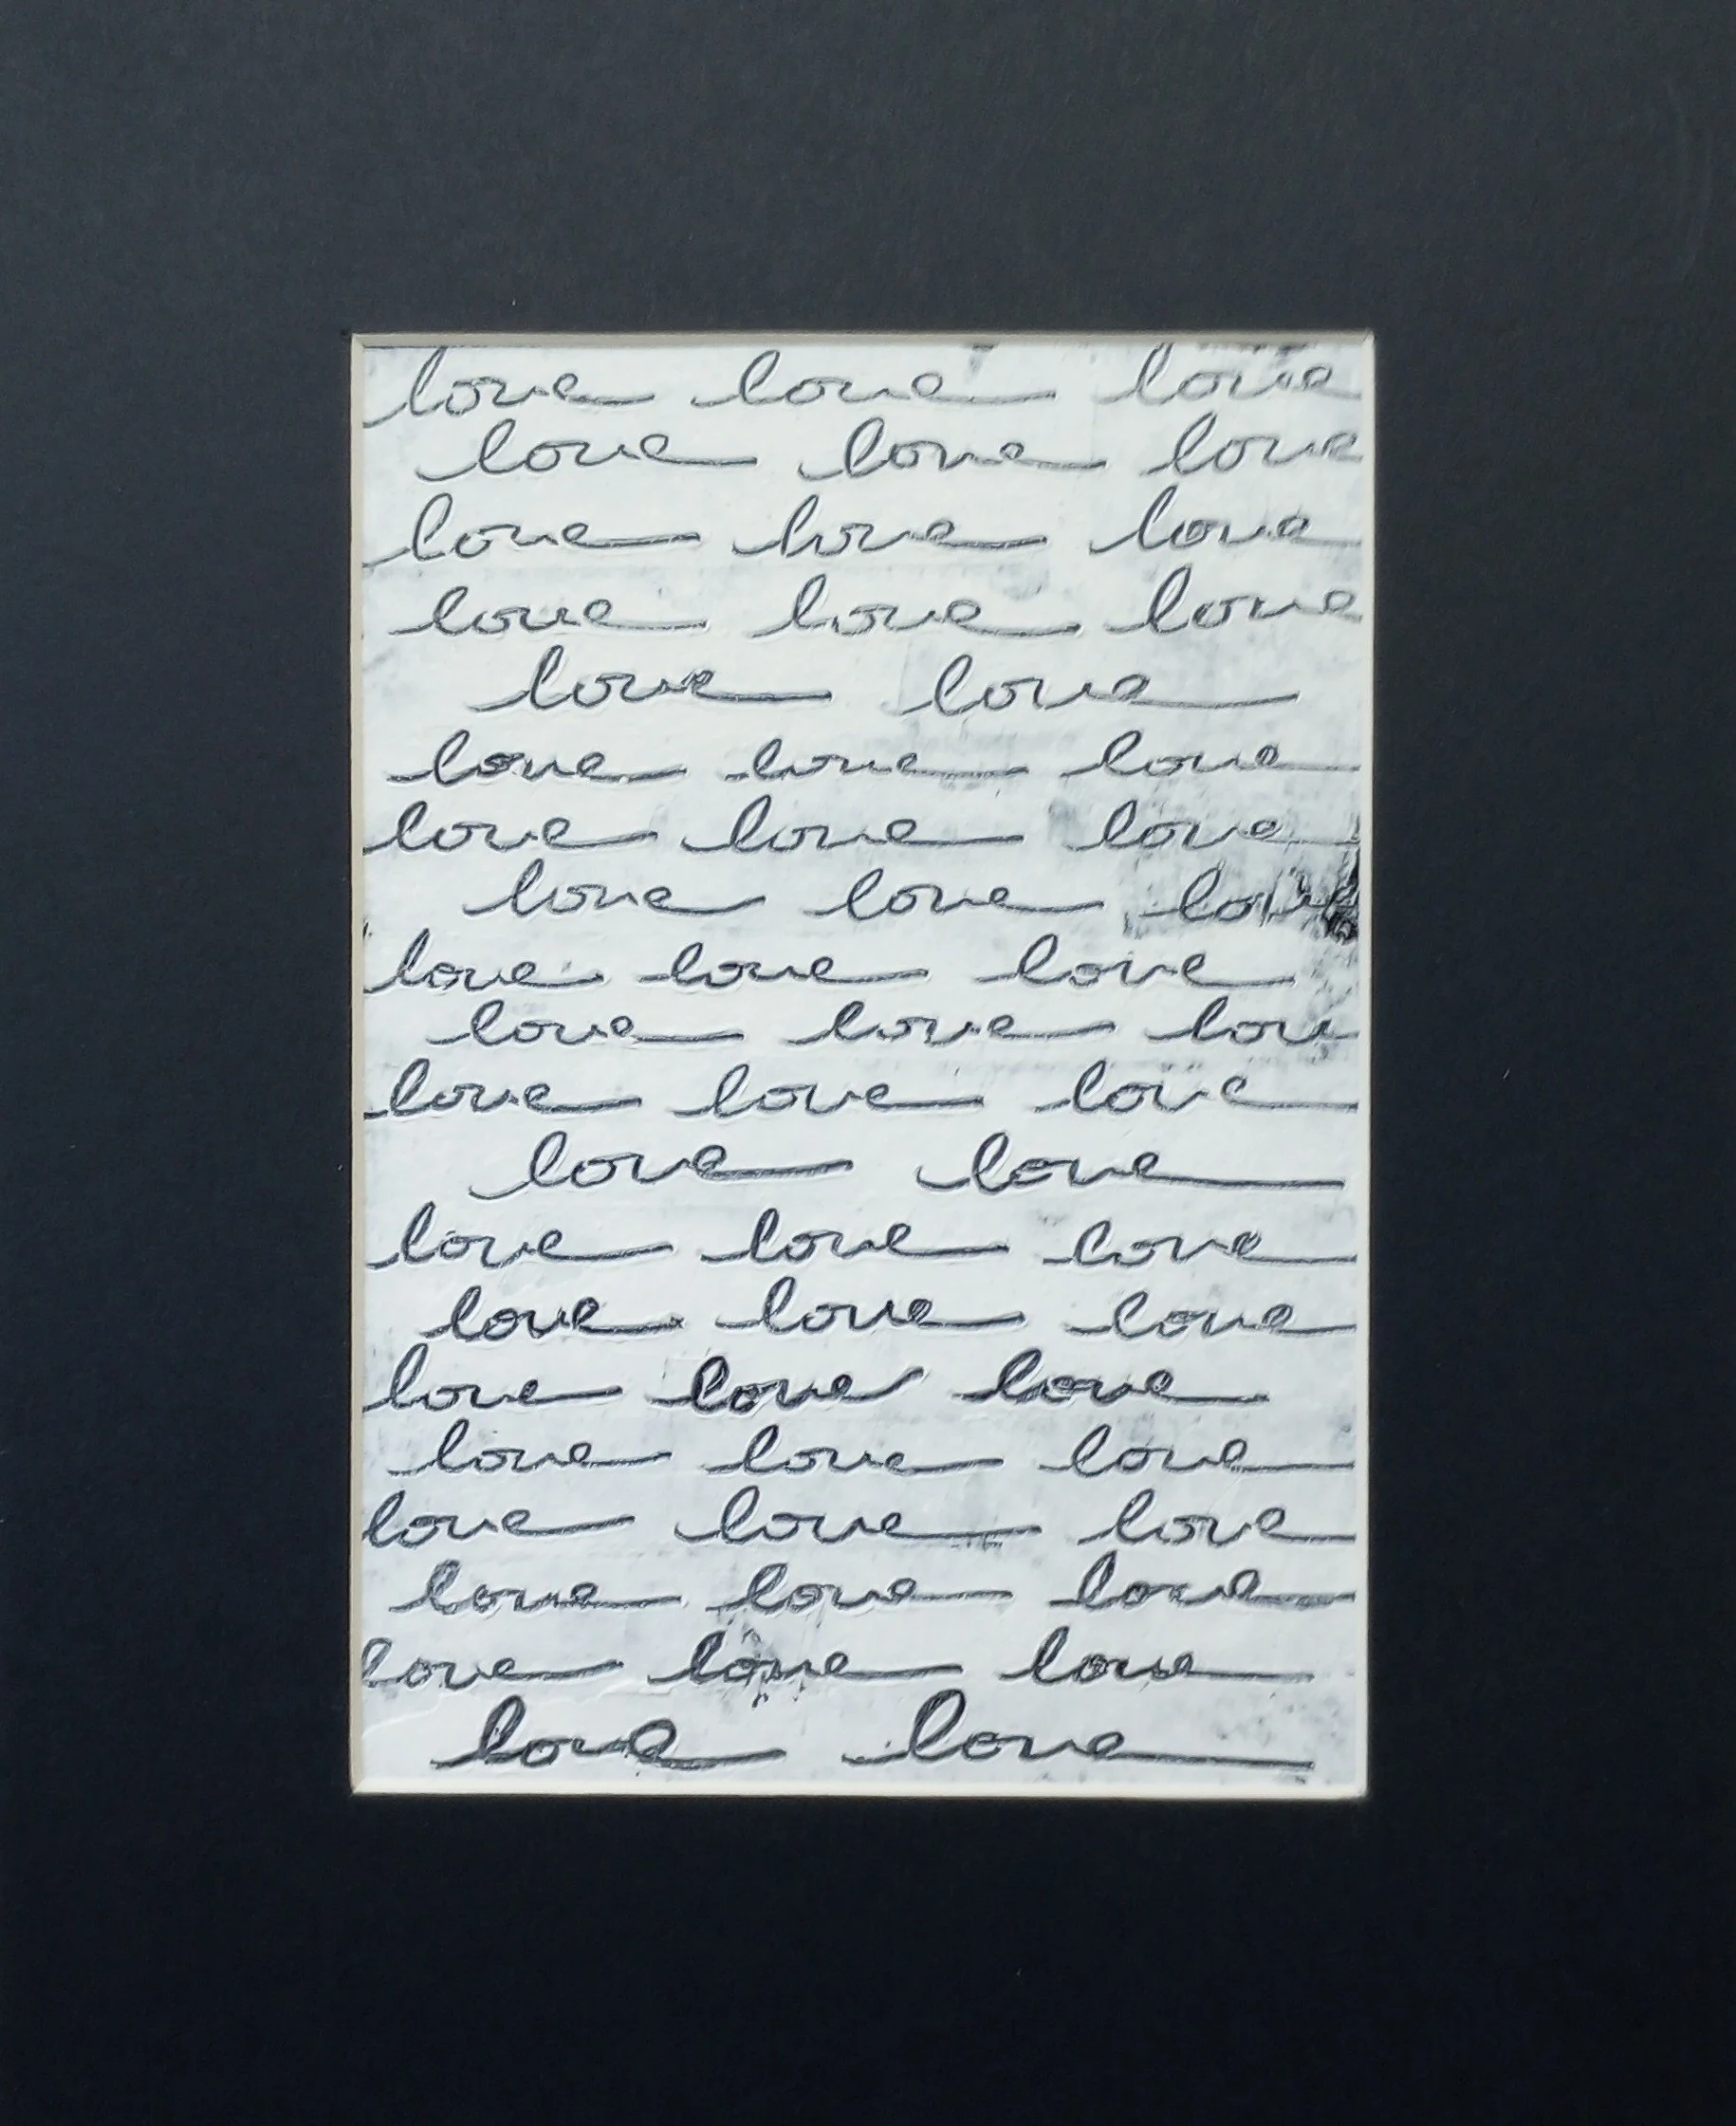 love love love
love love love
love love love
love love love
love love
love love love
love love love
love love love
love love love
love love lov
love love love
love love
love love love
love love love
love love love
love love love
love love love
love love love
love love love
love love